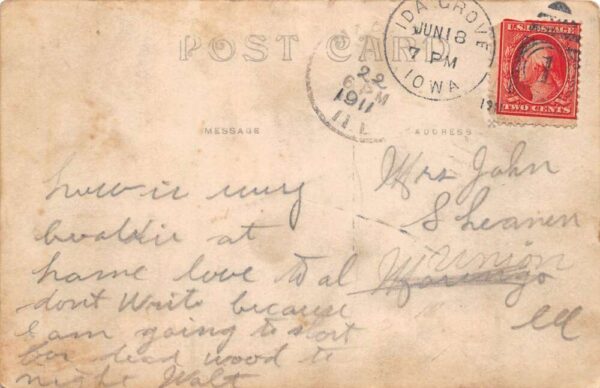 POST CARD
IDA GROVE
JUN 18
7 PM
IOWA
U.S. POSTAGE
TWO CENTS
1
22
6 PM
1911
ILL
MESSAGE
ADDRESS
how is
at
home love to al
dont Write because
I am going to start
for dead wood to
night Walt
Mrs John
Shearer
Union
Marengo
Ill